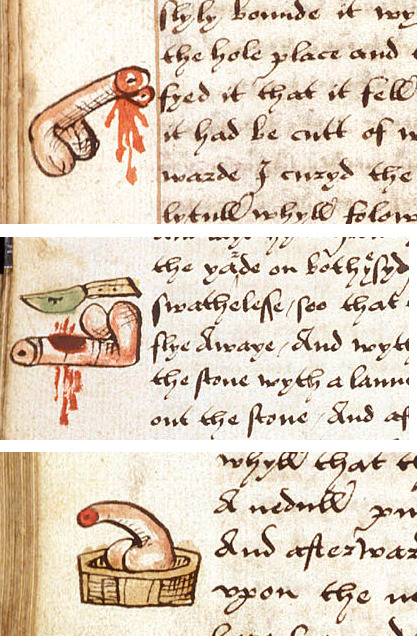 slyly bounde it wy
the hole place and
fyed it that it fell
it had be cutt of w
warde I curyd the
lytull whyll folow
the yade on bothe syd
swathelesse / soo that
flye Awaye / And wytt
the stone wyth a lann
out the stone / And af
whyll that t
A nedull pu
And afterwar
upon the ne